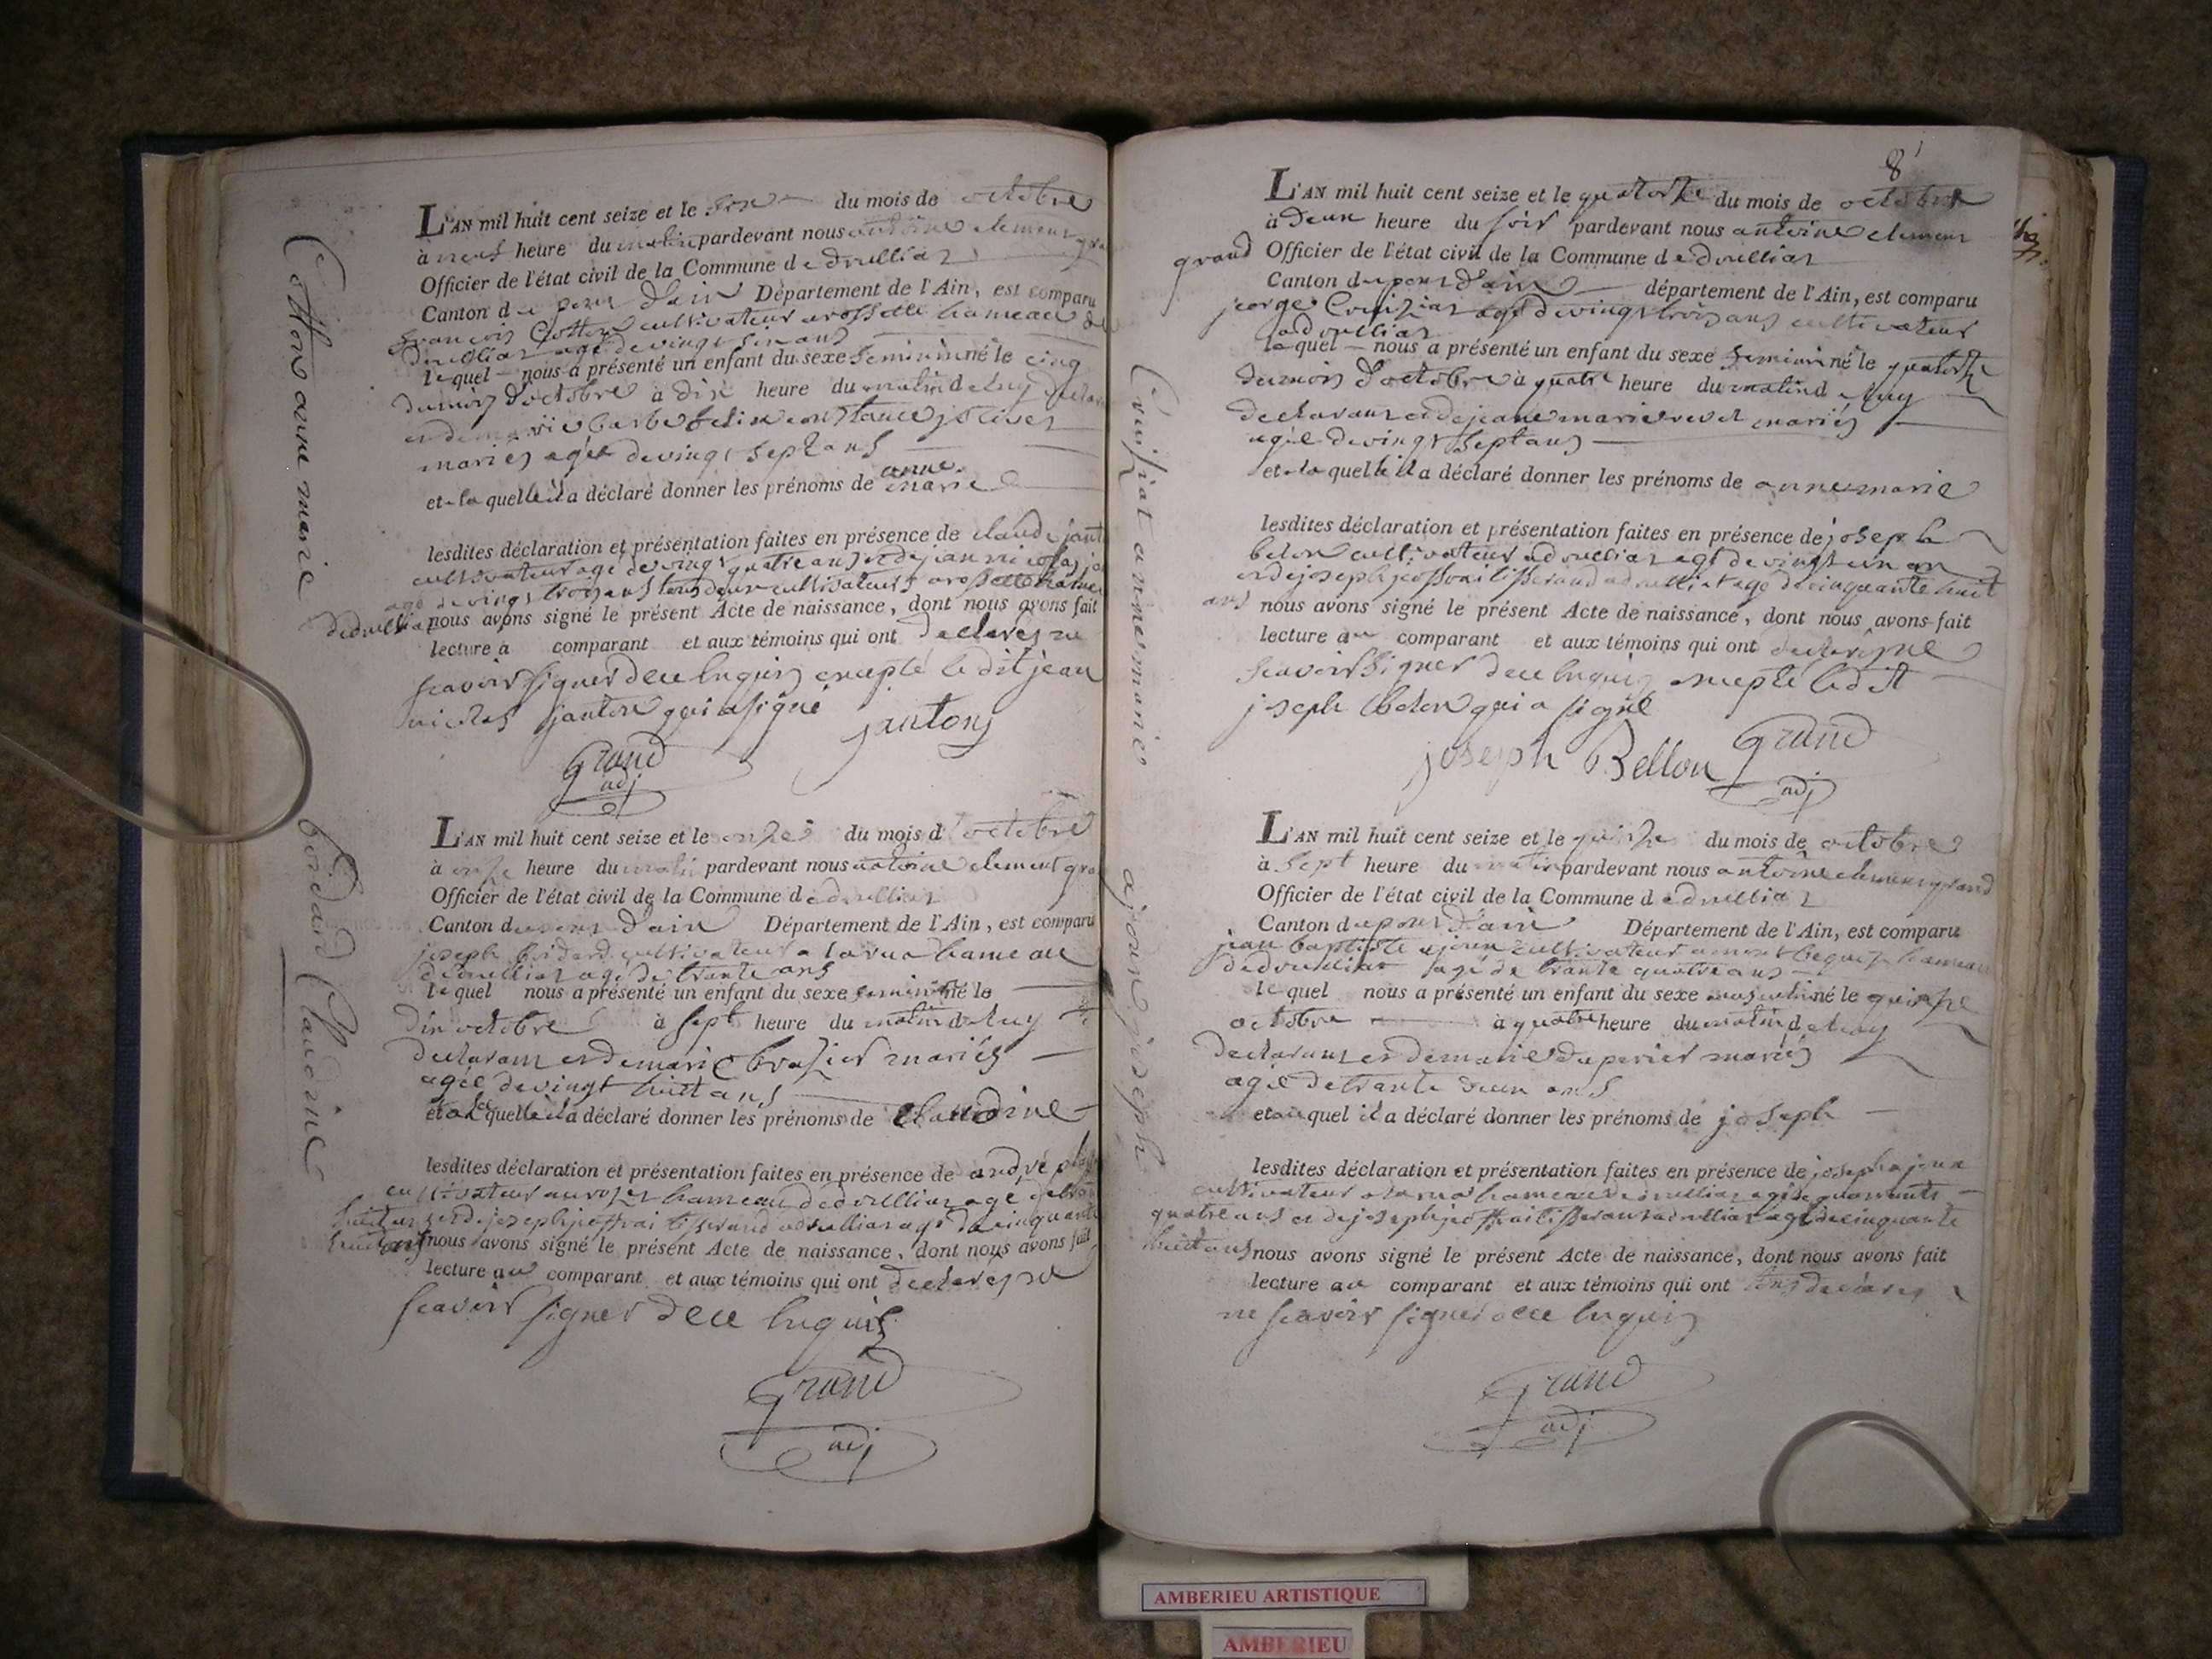 Cottons anne marie
L'AN mil huit cent seize et le six du mois de octobre
à neuf heure du matin pardevant nous antoine clement
Officier de l'état civil de la Commune de druilliat
Canton de pont d'ain Département de l'Ain, est comparu
françois Cotton cultivateur a rossette hameau de
druilliat agé de vingt six ans
lequel nous a présenté un enfant du sexe feminin né le cinq
du mois d'octobre à dix heure du matin de luy
et de marie barbe constance
mariés agée de vingt sept ans
et a laquelle il a déclaré donner les prénoms de anne
marie
lesdites déclaration et présentation faites en présence de claude
cultivateur agé de vingt quatre ans et de jean nicolas
agé de vingt trois ans tous deux cultivateurs a rossette
de druilliat nous avons signé le présent Acte de naissance, dont nous avons fait
lecture à comparant et aux témoins qui ont declarés ne
scavoir signer de ce enquis excepté le dit jean
nicolas janton qui a signé
jantons
Grand
adj
bordard Claudine
L'AN mil huit cent seize et le onze du mois d'octobre
à onze heure du matin pardevant nous antoine clement
Officier de l'état civil de la Commune de druilliat
Canton du pont d'ain Département de l'Ain, est comparu
joseph cultivateur a hameau
de druilliat agé de trante ans
lequel nous a présenté un enfant du sexe feminin né le
dix octobre à sept heure du matin de luy
declarant et de marie brazier mariés
agée de vingt huit ans
et a laquelle il a déclaré donner les prénoms de Claudine
lesdites déclaration et présentation faites en présence de andré
cultivateur hameau de druilliat agé de
huit ans et de joseph tisserand a druilliat agé de cinquante
huit ans nous avons signé le présent Acte de naissance, dont nous avons fait
lecture au comparant et aux témoins qui ont declarés ne
scavoir signer de ce enquis
Grand
adj
8
Cruiziat anne marie
L'AN mil huit cent seize et le quatorze du mois de octobre
à deux heure du soir pardevant nous antoine clement
grand Officier de l'état civil de la Commune de druilliat
Canton du pont d'ain département de l'Ain, est comparu
jeorge Cruiziat agé de vingt trois ans cultivateur
a druilliat
lequel nous a présenté un enfant du sexe feminin né le quatorze
du mois d'octobre à quatre heure du matin de luy
declarant et de jeane marie revel mariés
agée de vingt sept ans
et a laquelle il a déclaré donner les prénoms de anne marie
lesdites déclaration et présentation faites en présence de joseph
belon cultivateur a druilliat agé de vingt
et de joseph tisserand a druilliat agé de cinquante huit
ans nous avons signé le présent Acte de naissance, dont nous avons fait
lecture au comparant et aux témoins qui ont declarés ne
scavoir signer de ce enquis excepté ledit
joseph belon qui a signé
joseph Bellon Grand
adj
ajoux joseph
L'AN mil huit cent seize et le quinze du mois de octobre
à sept heure du matin pardevant nous antoine clement grand
Officier de l'état civil de la Commune de druilliat
Canton du pont d'ain Département de l'Ain, est comparu
jean baptiste ajoux cultivateur a hameau
de druilliat agé de trante quatre ans
lequel nous a présenté un enfant du sexe masculin né le quinze
octobre à quatre heure du matin de luy
declarant et de marie duperier mariés
agée de trante deux ans
et auquel il a déclaré donner les prénoms de joseph
lesdites déclaration et présentation faites en présence de joseph ajoux
cultivateur a hameau de druilliat agé de quarante
quatre ans et de joseph tisserant a druilliat agé de cinquante
huit ans nous avons signé le présent Acte de naissance, dont nous avons fait
lecture au comparant et aux témoins qui ont tous declarés
ne scavoir signer de ce enquis
Grand
adj
AMBERIEU ARTISTIQUE
AMBERIEU